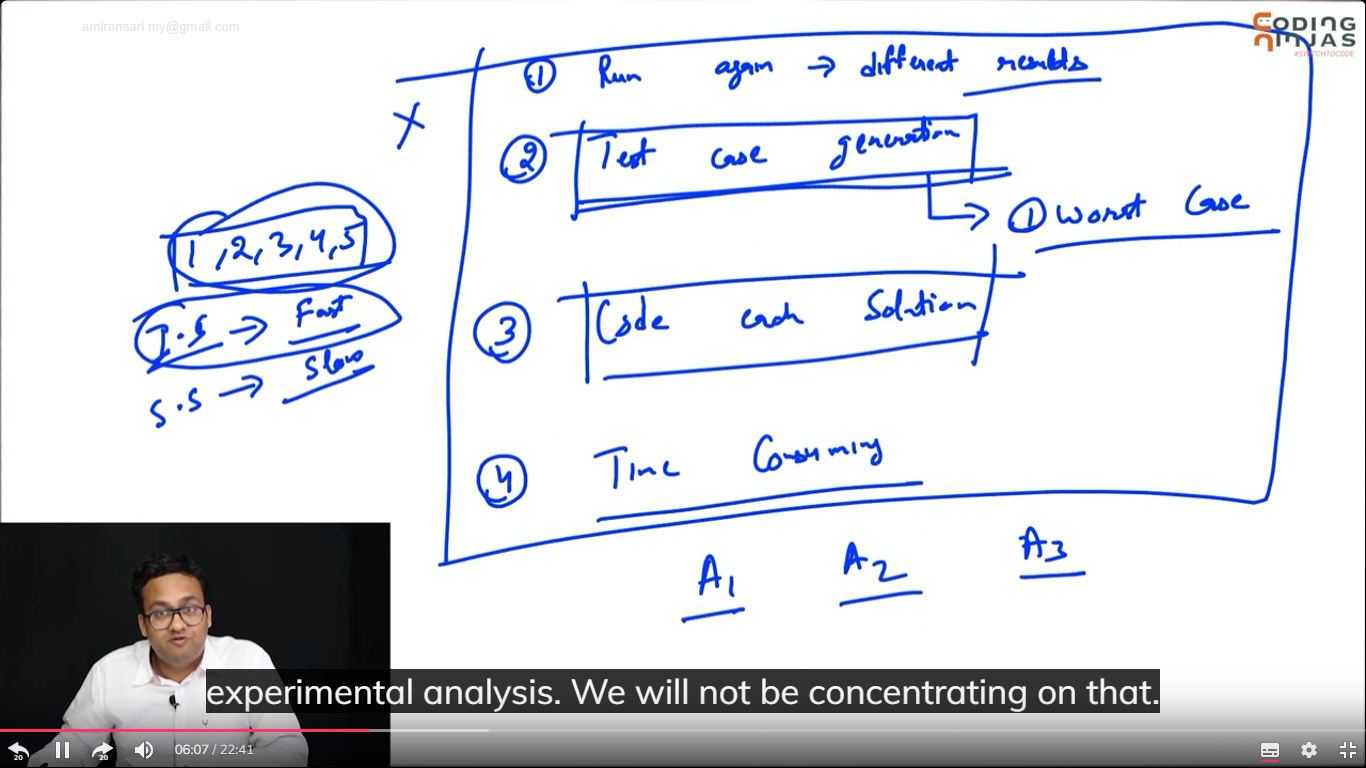 amiransari.my@gmail.com
CODING NINJAS
#SWITCHTOCODE
① Run again → different results
X
② Test case generation
① Worst Case
1, 2, 3, 4, 5
I.S → Fast
S.S → Slow
③ Code each Solution
④ Time Consuming
A1 A2 A3
experimental analysis. We will not be concentrating on that.
20 20 06:07 / 22:41